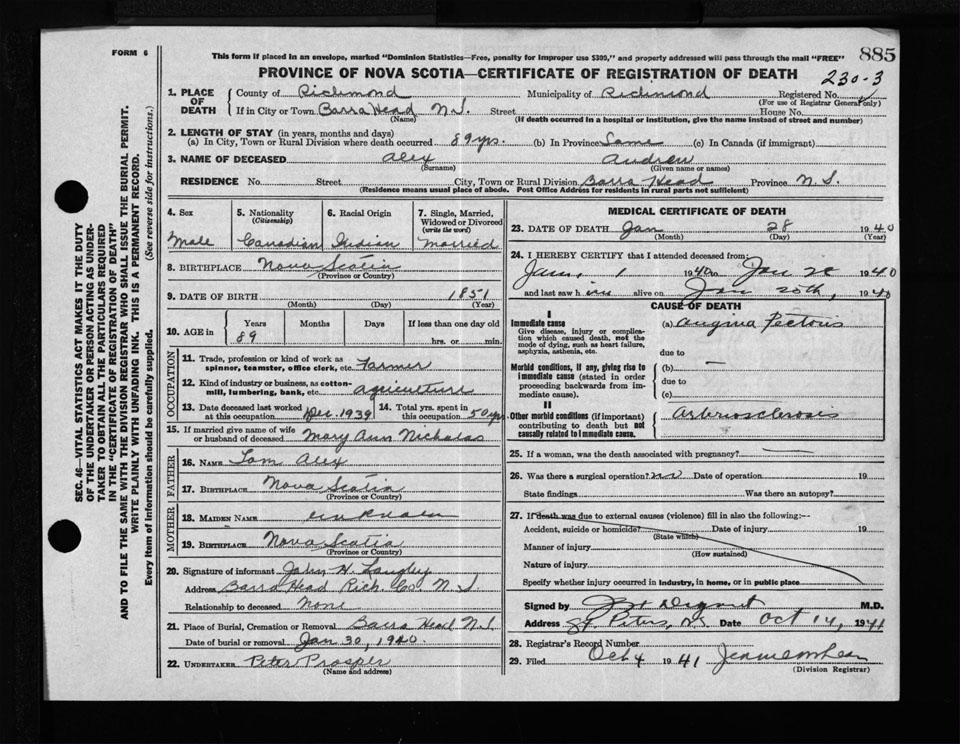 FORM 6
This form if placed in an envelope, marked "Dominion Statistics—Free, penalty for improper use $300," and properly addressed will pass through the mail "FREE"
885
PROVINCE OF NOVA SCOTIA—CERTIFICATE OF REGISTRATION OF DEATH
230-3
1. PLACE OF DEATH
County of Richmond Municipality of Richmond Registered No.
(For use of Registrar General only)
If in City or Town Barra Head N.S. Street House No.
(Name) (If death occurred in a hospital or institution, give the name instead of street and number)
2. LENGTH OF STAY (in years, months and days)
(a) In City, Town or Rural Division where death occurred 89 yrs. (b) In Province Same (c) In Canada (if immigrant)
3. NAME OF DECEASED Alex Andrew
(Surname) (Given name or names)
RESIDENCE No. Street City, Town or Rural Division Barra Head Province N.S.
(Residence means usual place of abode. Post Office Address for residents in rural parts not sufficient)
4. Sex
Male
5. Nationality (Citizenship)
Canadian
6. Racial Origin
Indian
7. Single, Married, Widowed or Divorced (write the word)
Married
8. BIRTHPLACE Nova Scotia
(Province or Country)
9. DATE OF BIRTH 1851
(Month) (Day) (Year)
10. AGE in
Years Months Days If less than one day old
89 hrs. or min.
OCCUPATION
11. Trade, profession or kind of work as spinner, teamster, office clerk, etc. Farmer
12. Kind of industry or business, as cotton-mill, lumbering, bank, etc. agriculture
13. Date deceased last worked at this occupation Dec. 1939
14. Total yrs. spent in this occupation 50 yrs
15. If married give name of wife or husband of deceased Mary Ann Nicholas
FATHER
16. NAME Tom Alex
17. BIRTHPLACE Nova Scotia
(Province or Country)
MOTHER
18. MAIDEN NAME unknown
19. BIRTHPLACE Nova Scotia
(Province or Country)
20. Signature of informant John H. Langley
Address Barra Head Rich. Co. N.S
Relationship to deceased None
21. Place of Burial, Cremation or Removal Barra Head N.S
Date of burial or removal Jan 30, 1940.
22. UNDERTAKER Peter Prosper
(Name and address)
MEDICAL CERTIFICATE OF DEATH
23. DATE OF DEATH Jan 28 1940
(Month) (Day) (Year)
24. I HEREBY CERTIFY that I attended deceased from:
Jan. 1 1940 to Jan 28 1940
and last saw him alive on Jan 20th, 1940
CAUSE OF DEATH
I
Immediate cause
Give disease, injury or complication which caused death, not the mode of dying, such as heart failure, asphyxia, asthenia, etc.
(a) Angina Pectoris
due to
Morbid conditions, if any, giving rise to immediate cause (stated in order proceeding backwards from immediate cause).
(b) —
due to
(c)
II
Other morbid conditions (if important) contributing to death but not causally related to immediate cause.
Arteriosclerosis
25. If a woman, was the death associated with pregnancy? —
26. Was there a surgical operation? no Date of operation 19
State findings Was there an autopsy?
27. If death was due to external causes (violence) fill in also the following:—
Accident, suicide or homicide? Date of injury 19
(State which)
Manner of injury
(How sustained)
Nature of injury
Specify whether injury occurred in industry, in home, or in public place
Signed by M.D.
Address St. Peters, N.S Date Oct 14, 1941
28. Registrar's Record Number
29. Filed Oct 4 1941
(Division Registrar)
SEC. 46—VITAL STATISTICS ACT MAKES IT THE DUTY
OF THE UNDERTAKER OR PERSON ACTING AS UNDER-
TAKER TO OBTAIN ALL THE PARTICULARS REQUIRED
IN THE "CERTIFICATE OF REGISTRATION OF DEATH"
AND TO FILE THE SAME WITH THE DIVISION REGISTRAR WHO SHALL ISSUE THE BURIAL PERMIT.
WRITE PLAINLY WITH UNFADING INK. THIS IS A PERMANENT RECORD.
Every item of information should be carefully supplied. (See reverse side for instructions.)